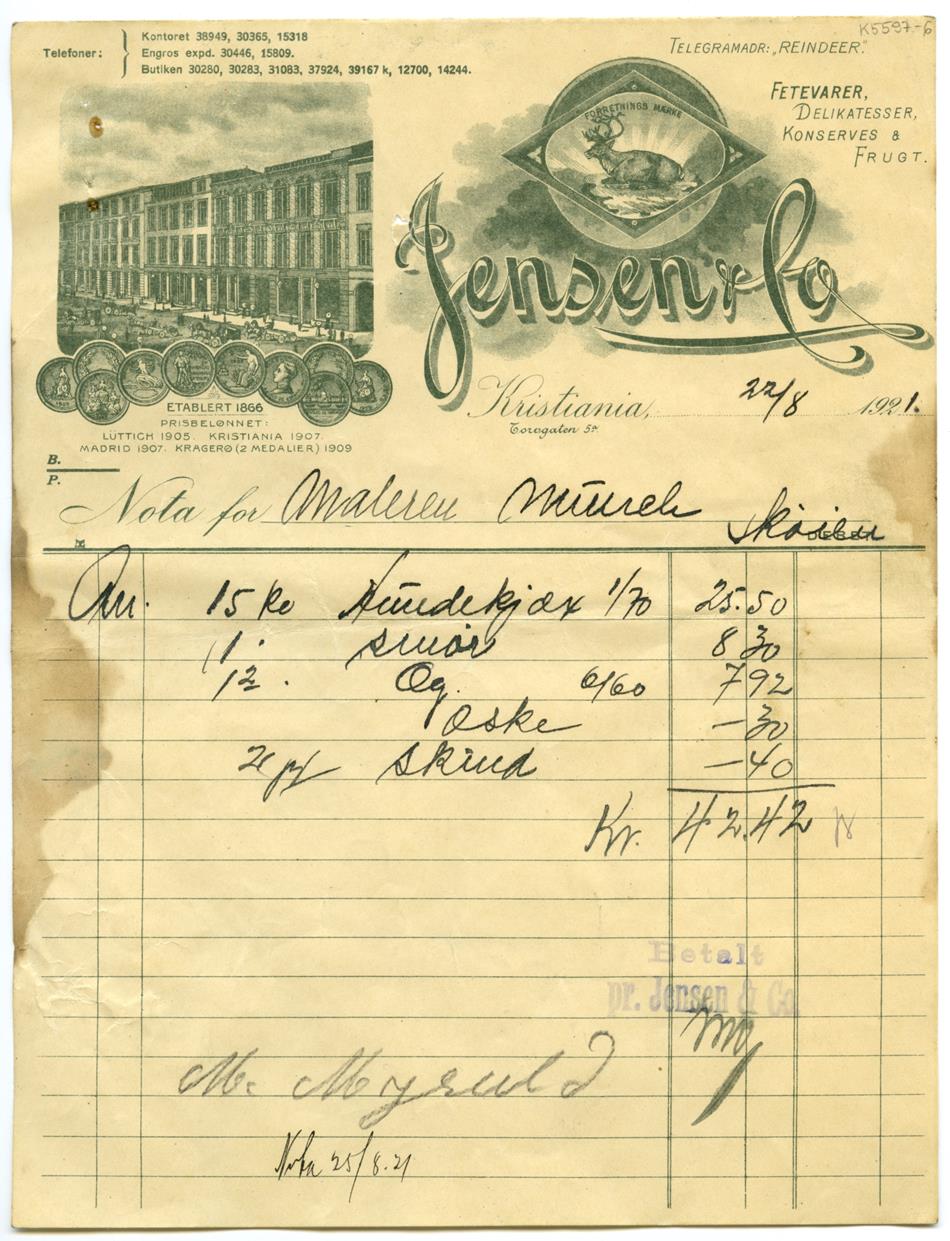 K5597-6
Telefoner:
Kontoret 38949, 30365, 15318
Engros expd. 30446, 15809.
Butiken 30280, 30283, 31083, 37924, 39167 k, 12700, 14244.
TELEGRAMADR: „REINDEER."
FETEVARER,
DELIKATESSER,
KONSERVES &
FRUGT.
FORRETNINGS MÆRKE
Jensen & Co
ETABLERT 1866
PRISBELØNNET:
LÜTTICH 1905. KRISTIANIA 1907.
MADRID 1907. KRAGERØ (2 MEDALIER) 1909
Kristiania, 22/8 1921.
Torvgaten 5a
B.
P.
Nota for Maleren Munch
Skøien
An. 15 ko Hundekjæx 1/70 25.50
1 . Smør 8 30
12 . Eg 6/60 7 92
Æske – 30
2 Skind – 40
Kr. 42.42
Betalt
pr. Jensen & Co
Nota 25/8.21